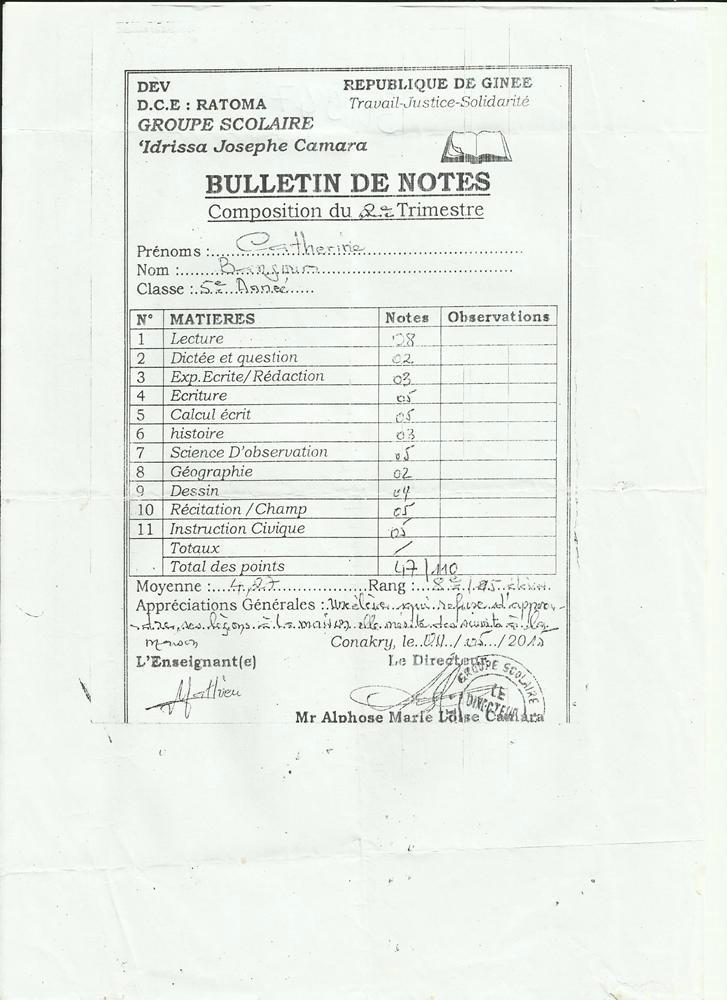 DEV REPUBLIQUE DE GINEE
D.C.E : RATOMA Travail-Justice-Solidarité
GROUPE SCOLAIRE
'Idrissa Josephe Camara
BULLETIN DE NOTES
Composition du 2è Trimestre
Prénoms : Catherine
Nom :
Classe : 5è Année
N° MATIERES Notes Observations
1 Lecture 08
2 Dictée et question 02
3 Exp.Ecrite/Rédaction 03
4 Ecriture 05
5 Calcul écrit 05
6 histoire 03
7 Science D'observation 05
8 Géographie 02
9 Dessin 04
10 Récitation /Champ 05
11 Instruction Civique 05
Totaux /
Total des points 47/110
Moyenne : 4,27 Rang :
Appréciations Générales : Une élève qui refuse d'appren-
dre ses leçons à la maison elle mérite
maison Conakry, le /05/2015
L'Enseignant(e) Le Directeur
Mathieu
GROUPE SCOLAIRE
LE DIRECTEUR
Mr Alphose Marie Loise Camara